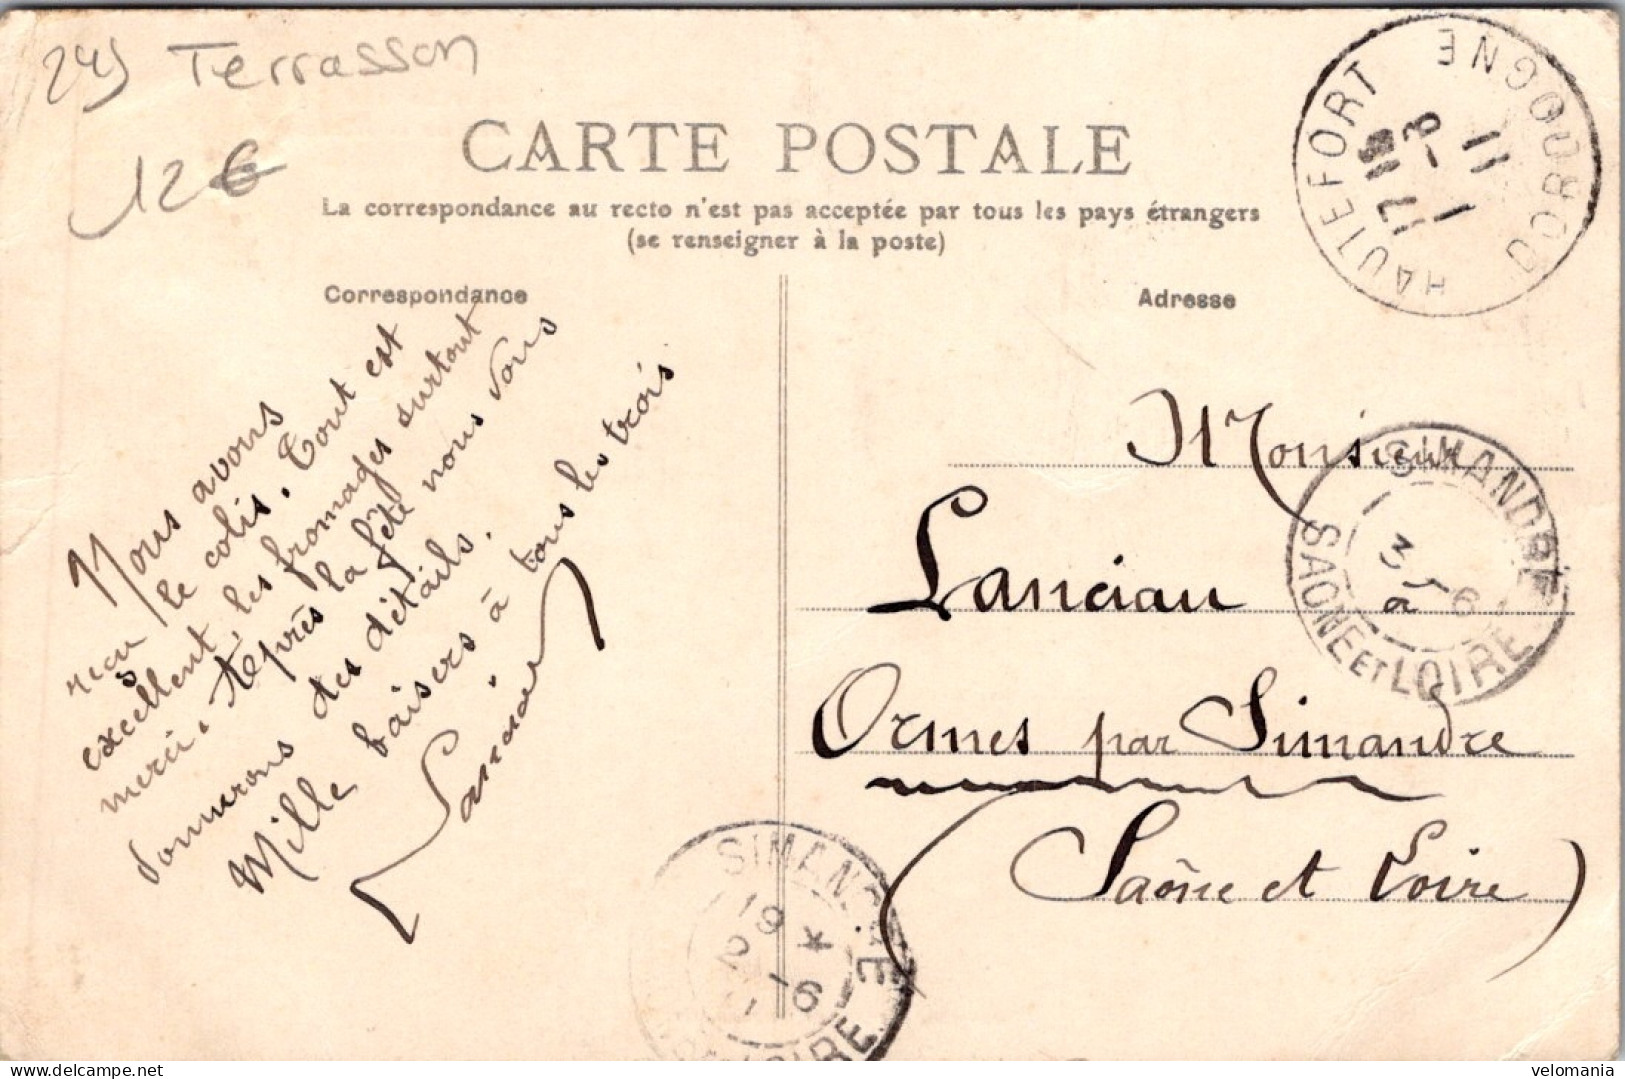 24) Terrasson
12€
CARTE POSTALE
La correspondance au recto n'est pas acceptée par tous les pays étrangers
(se renseigner à la poste)
Correspondance
Adresse
Nous avons
reçu le colis. Tout est
excellent, les fromages surtout
merci. Après la fête nous vous
donnerons des détails.
Mille baisers à tous les trois
Lanciau
Monsieur
Lanciau
Ormes par Simandre
(Saône et Loire)
HAUTEFORT DORDOGNE
17
1 -8
11
SIMANDRE
3 - 6
SAONE ET LOIRE
SIMANDRE
19 *
2 -6
11
LOIRE
velomania